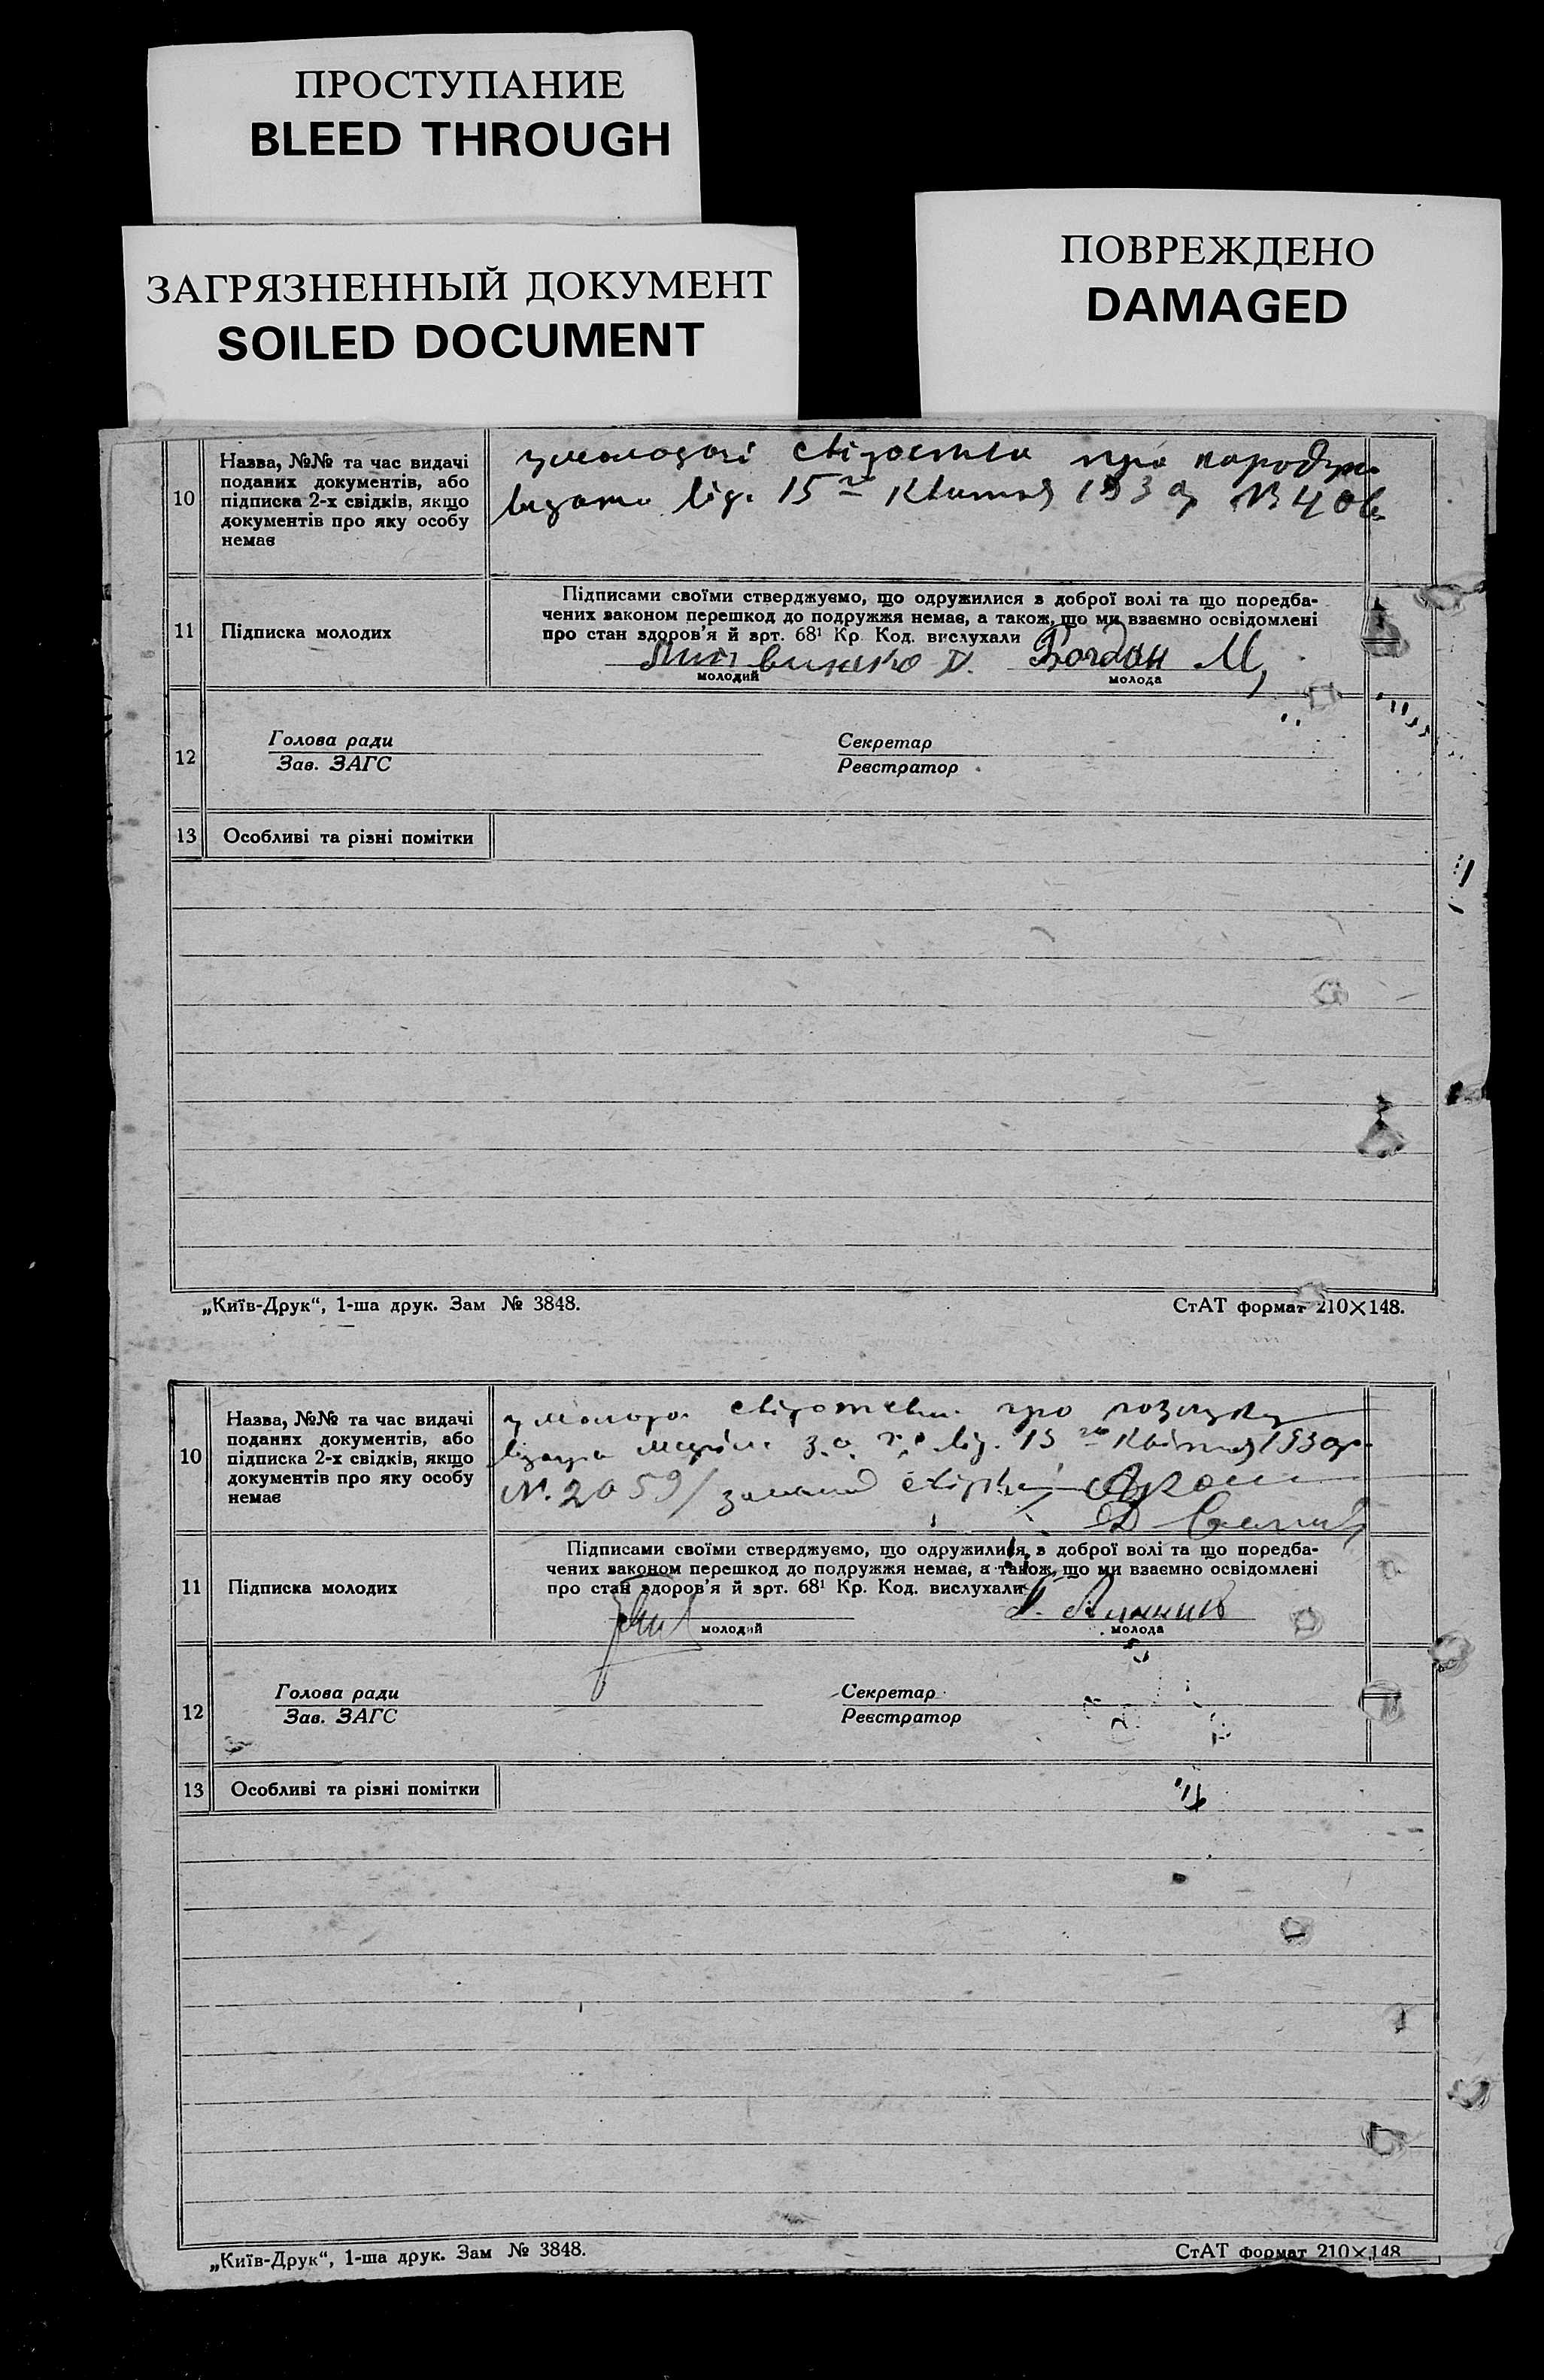 ПРОСТУПАНИЕ
BLEED THROUGH
ЗАГРЯЗНЕННЫЙ ДОКУМЕНТ
SOILED DOCUMENT
ПОВРЕЖДЕНО
DAMAGED
10
Назва, №№ та час видачі
поданих документів, або
підписка 2-х свідків, якщо
документів про яку особу
немає
про
від. 15 1939
11
Підписка молодих
Підписами своїми стверджуємо, що одружилися з доброї волі та що поредба-
чених законом перешкод до подружжя немає, а також, що ми взаємно освідомлені
про стан здоров'я й арт. 68¹ Кр. Код. вислухали
Богдан М,
молодий
молода
12
Голова ради
Зав. ЗАГС
Секретар
Реєстратор
13
Особливі та різні помітки
„Київ-Друк“, 1-ша друк. Зам № 3848.
СтАТ формат 210×148.
10
Назва, №№ та час видачі
поданих документів, або
підписка 2-х свідків, якщо
документів про яку особу
немає
про
від. 15
№. 2059/
11
Підписка молодих
Підписами своїми стверджуємо, що одружилися з доброї волі та що поредба-
чених законом перешкод до подружжя немає, а також, що ми взаємно освідомлені
про стан здоров'я й арт. 68¹ Кр. Код. вислухали
молодий
молода
12
Голова ради
Зав. ЗАГС
Секретар
Реєстратор
13
Особливі та різні помітки
„Київ-Друк“, 1-ша друк. Зам № 3848.
СтАТ формат 210×148